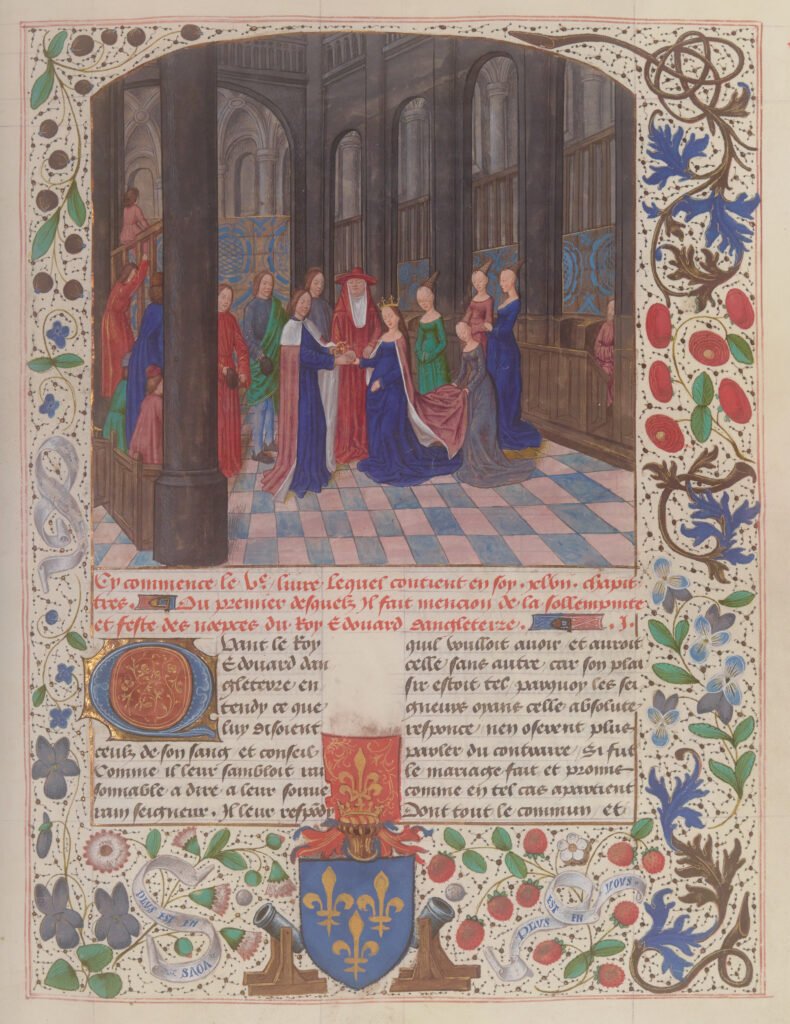 Cy commence le Ve livre lequel contient en soy .xlvii. chapit
tres. Du premier desquelz Il fait mencion de la sollempnite
et feste des noepces du Roy Edouard dangleterre. .I.
Quant le Roy
Edouard dan
gleterre en
tendy ce que
luy disoient
ceulz de son sang et conseil
Comme il leur sambloit rai
sonnable a dire a leur souve
rain seigneur. Il leur respondy
quil voulloit avoir et auroit
celle sans autre car son plai
sir estoit tel parquoy les sei
gneurs oyans celle absolute
responce nen oserent plus
parler du contraire Si fut
le mariage fait et promis
comme en tel cas apartient
Dont tout le commun et
PLUS EST EN
PLUS
EST EN
VOUS